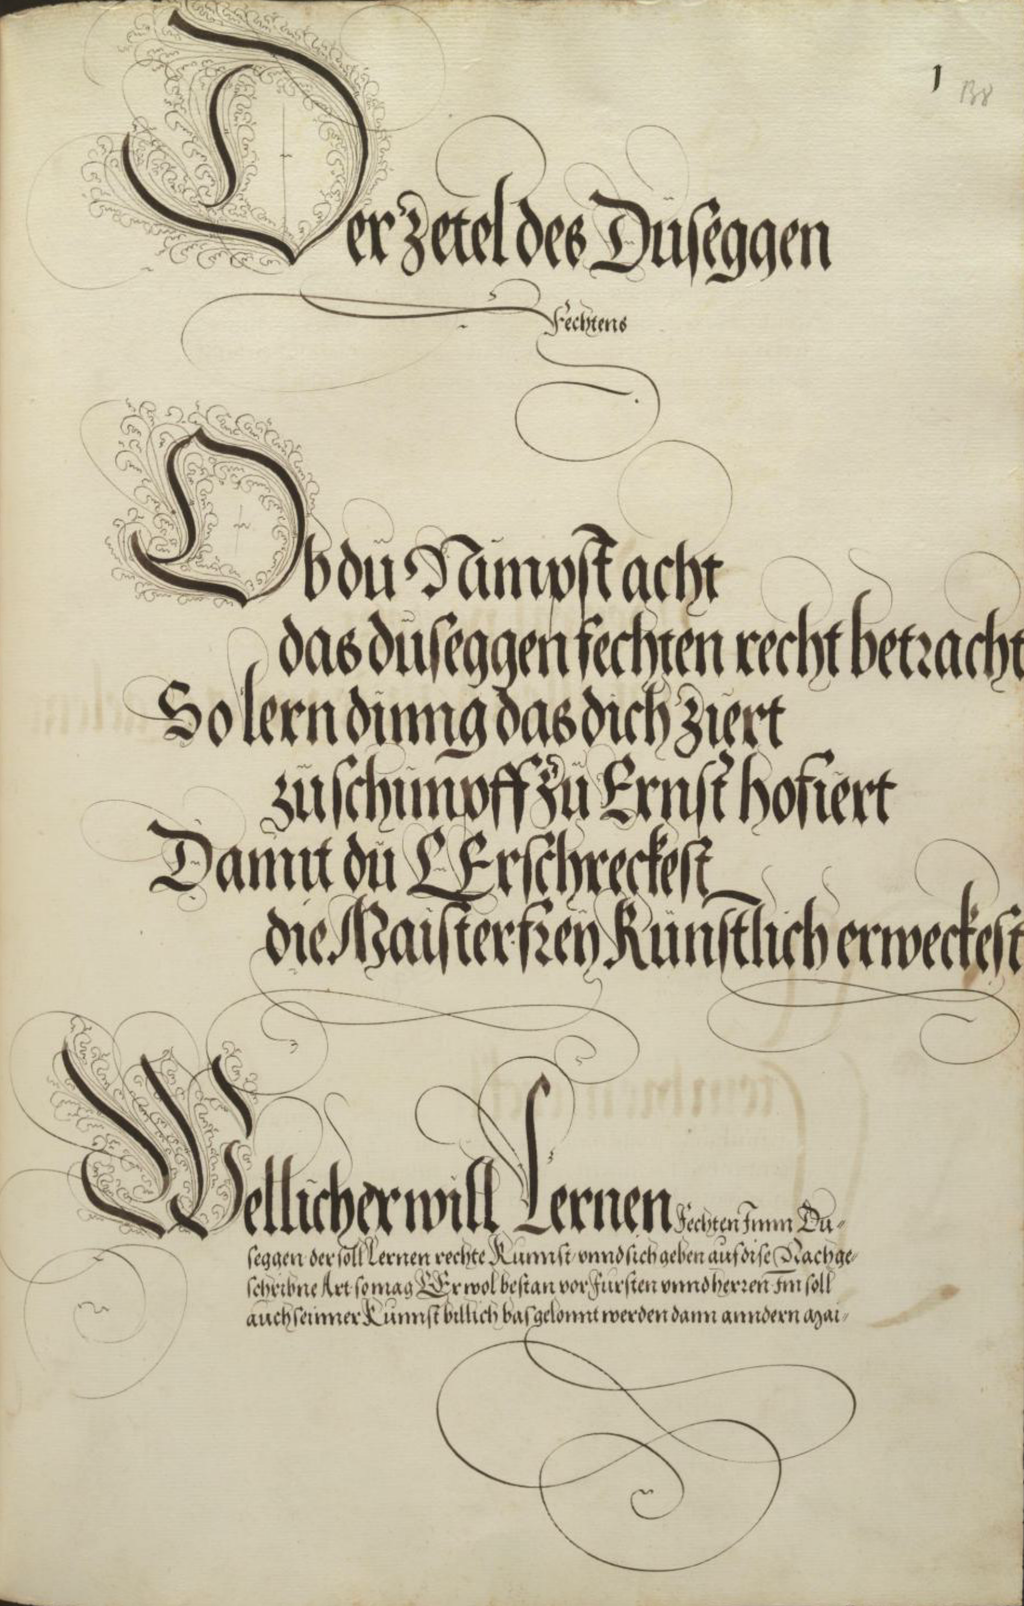 1
138
Der Zetel des Duseggen
Fechtens
Ob du Nimpst acht
das duseggen fechten recht betracht
So lern dinng das dich Ziert
zu schimpff zu Ernst hofiert
Damit du L Erschreckest
die Maister freÿ Kunstlich erweckest
Wellicher will Lernen Fechten Jnnn Du-
seggen der soll Lernen rechte Kunnst vnnd sich geben auf dise Nachge-
schribne Art so mag Er wol bestan vor Fursten vnnd herren Jm soll
auch seinner Kunnst billich bas gelonnt werden dann anndern Mai-